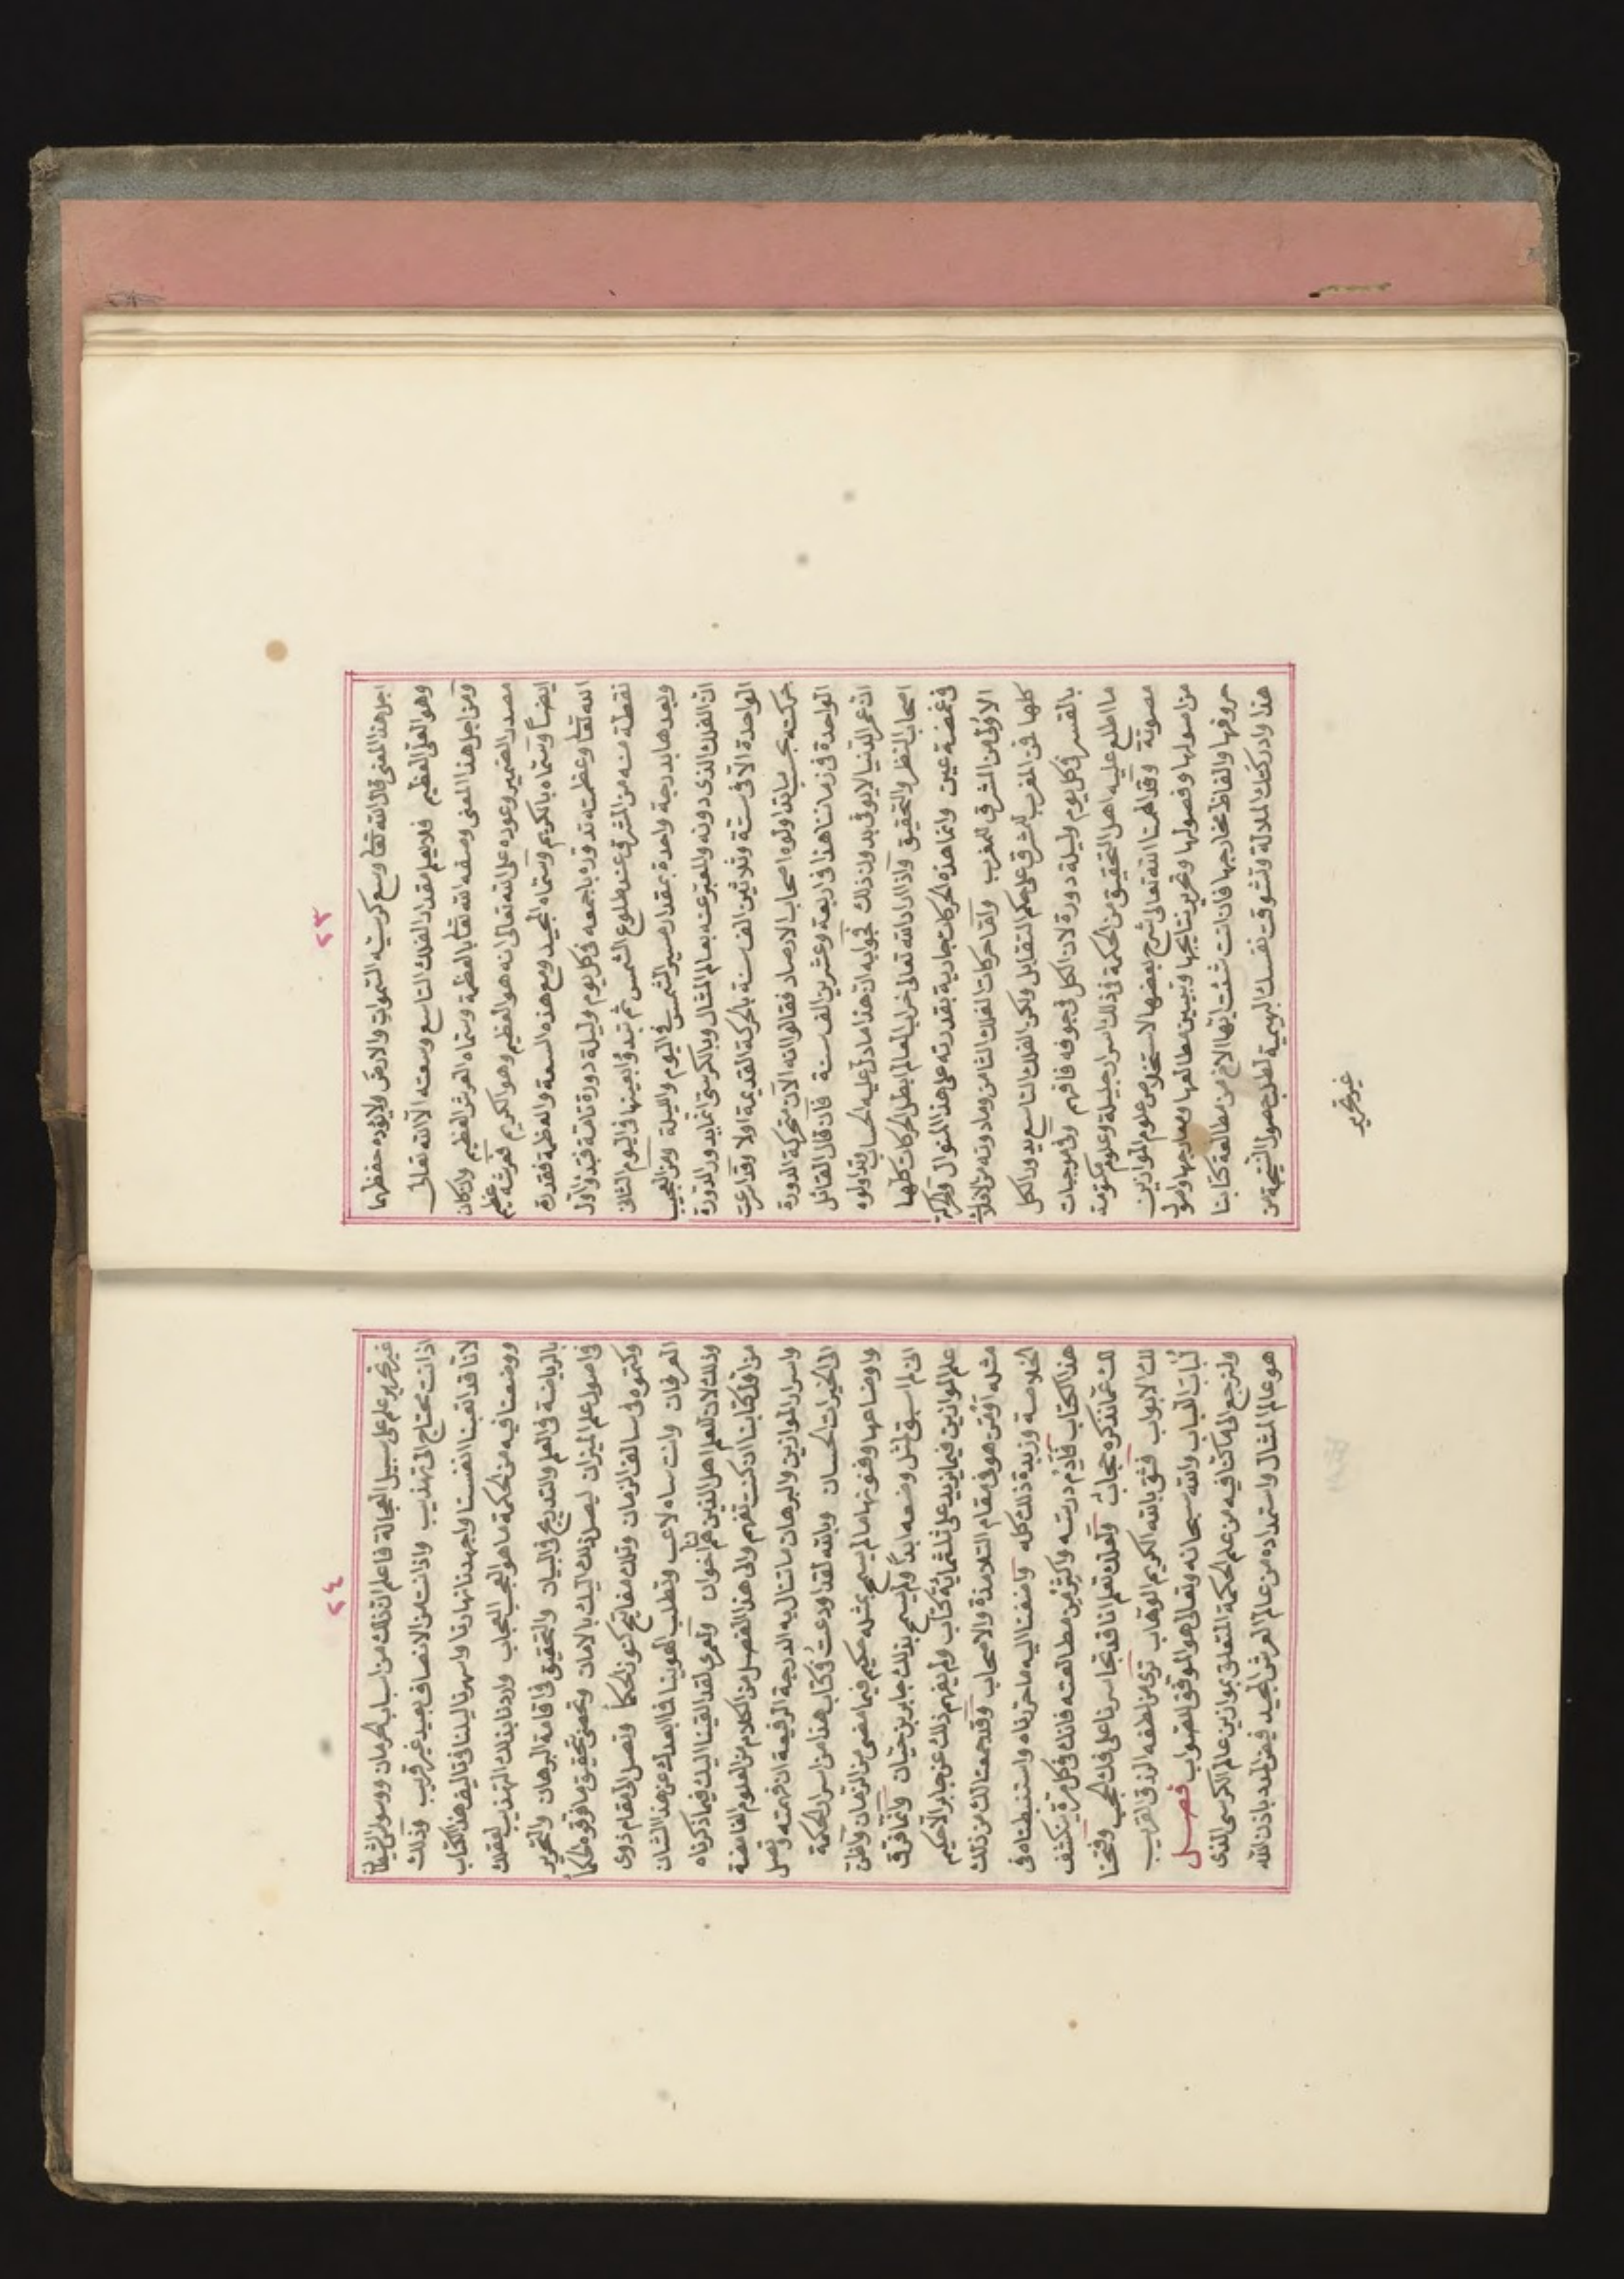 ٢٣
اجل هذا المعنى قال الله تعالى وسع كرسيه السموات والارض ولا يؤده حفظهما
وهو العلى العظيم فلا يعلم مقدار الفلك التاسع وسعته الا الله تعالى
ومن اجل هذا المعنى وصفه الله تعالى بالعظمة وسماه العرش العظيم وان كان
مصدر الضمير وعوده على الله تعالى انه هو العظيم وهو الكريم فعرشه عظيم
ايضاً وسماه بالكريم وسماه المجيد ومع هذه السعة والعظمة فقدرة
الله تعالى وعظمته تدوره باجمعه فى كل يوم وليلة دورة تامة فتبدؤ اول
نقطة منه من المشرق عند طلوع الشمس ثم تبدؤ بعينها فى اليوم الثانى
وبعدها بدرجة واحدة بمقدار مسير الشمس فى اليوم والليلة ومن العجيب
ان الفلك الذى دونه والمعبر عنه بعالم المثال وبالكرسى انما يدور الدورة
الواحدة الا فى ستة وثلاثين الف سنة بالحركة القديمة اولا وقد اسرعت
حركته بحسب ما تداولوه اصحاب الارصاد فقالوا انه الآن متحركة الدورة
الواحدة فى زماننا هذا فى اربعة وعشرين الف سنة فان قال القائل
ان عمر الدنيا لا يوفى بدون ذلك فجوابه ان هذا ما دل عليه الحساب وتداولوه
اصحاب النظر والتحقيق واذا اراد الله تعالى خراب العالم ابطل الحركات كلها
فى غمضة عين وانما هذه الحركات جارية بقدرته على هذا المنوال والحركة
الاولى من المشرق للمغرب واما حركات الفلك الثامن وما دونه من الافلاك
كلها فمن المغرب للمشرق على حكم التقابل ولكن الفلك التاسع يدور الكل
بالقسر فى كل يوم وليلة دورة لان الكل فى جوفه فافهم وفى موجبات
ما اطلع عليه اهل التحقيق من الحكمة فى ذلك اسرار جليلة وعلوم مكتومة
مصونة وقد الهمنا الله تعالى شرح بعضها لاستخلاص علوم الموازين
من اصولها وفصولها وتحرير نتائجها وتبيين مطالعها ومعارجها واصول
حروفها والفاظ مخارجها فان انت شئت ايها الاخ من مطالعة كتابنا
هذا وادركتك الملالة وتشوقت نفسك البهيمية لطلب حصول النتيجة من
غير تحرير
٢٤
غير تحرير علم على سبيل العجالة فاعلم ان ذلك من اسباب الحرمان ووسواس الشيطان
اذ انت محتاج الى تهذيب واذ انت من الانصاف بعيد غير قريب وذلك
لانا قد اتعبنا انفسنا واجهدنا نهارنا واسهرنا ليلنا فى تاليف هذا الكتاب
ووضعنا فيه من الحكمة ما هو العجب العجاب واردنا بذلك التهذيب لعقلك
بالرياضة فى العلم والتدريج فى البيان والتحقيق فى اقامة البرهان والتحرير
فى اصول علم الميزان ليصل ذلك اليك بالامان وتحضى بتحقيق ما قرره الحكما
وكتموه فى سالف الزمان وتلك مفاتيح كنوز الحكما وتصل الى مقام ذوى
العرفان وانت ساه لاعب وتطلب الهوينا فما ابعدك عن هذا الشان
وذلك لان العلم اهل الذين هم اخواننا ولعمرى لقد القينا اليك فيما ذكرناه
من اول كتابنا ان كنت تفهم والى هذا الفصل من الكلام من العلوم الغامضة
واسرار الموازين والبرهان ما تنال به الدرجة الرفيعة ان فهمته وتصل
الى الخيرات الحسان وبالله لقد اودعتُ فى كتاب هذا من اسرار الحكمة
واوضاعها وفنونها ما لم يسمح بمثله حكيم فيما مضى من الزمان واظن
انى لم اسبق لمثل وضعه ابداً ولم يسمح بذلك جابر بن حيان وانما فرق
علم الموازين فيما يزيد على ثلثمائة كتاب ولم يفهم ذلك عن جابر الا حكيم
مثله او من هو فى مقام التلامذة والاصحاب وقد جمعنا لك من ذلك
الخلاصة وزبدة ذلك كله واضفنا اليه ما حررناه واستنبطناه فى
هذا الكتاب فأدِم درسته واكثر من مطالعته فانك فى كل مرة ينكشف
لك عما نذكره حجاب ولعلك تعلم انا قد تجاسرنا على فك الحجب وفتحنا
لك الابواب فثق بالله الكريم الوهاب ترى من لطفه الرزق القريب
لُباب الباب والله سبحانه وتعالى هو الموفق للصواب فصــل
ولنرجع الى ما كنا فيه من علم الحكمة المتعلق بموازين عالم الكرسى الذى
هو عالم المثال واستمداده من عالم العرش المجيد فيض المدد باذن الله